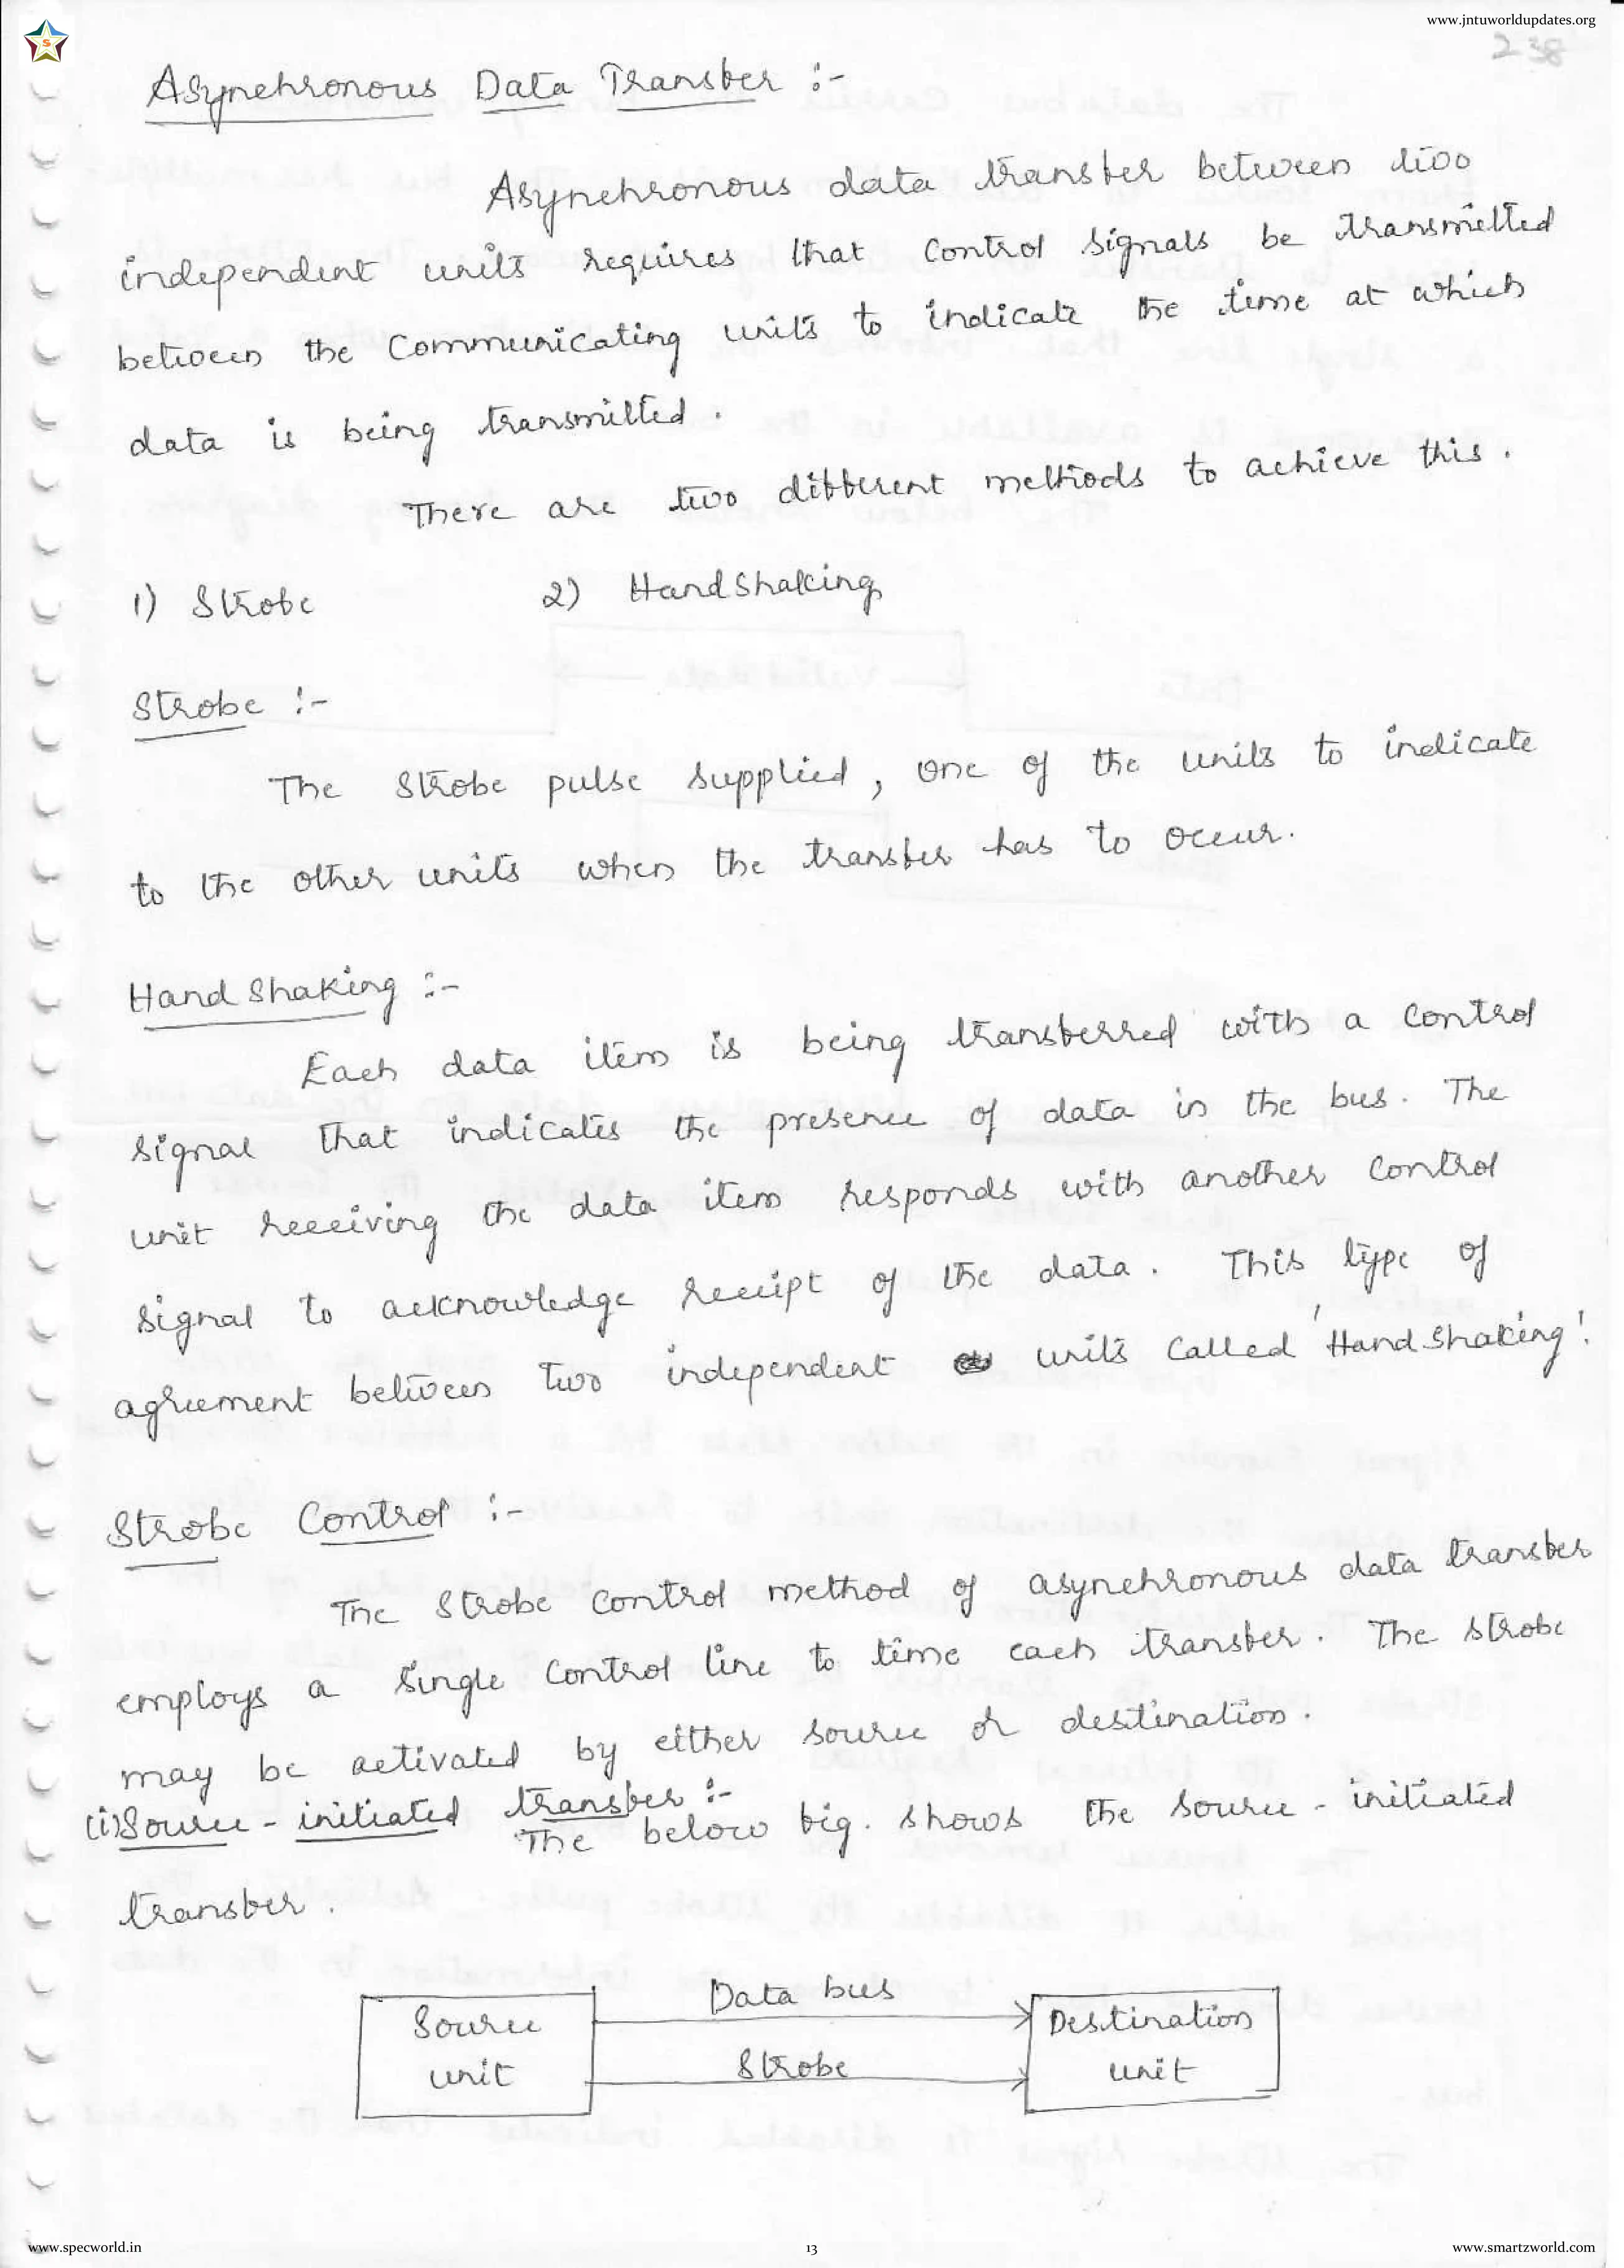 www.jntuworldupdates.org
S
238
Asynchronous Data Transfer :-
Asynchronous data transfer between two
independent units requires that control signals be transmitted
between the communicating units to indicate the time at which
data is being transmitted.
There are two different methods to achieve this.
1) Strobe 2) Hand Shaking
Strobe :-
The strobe pulse supplied, one of the units to indicate
to the other units when the transfer has to occur.
Hand Shaking :-
Each data item is being transferred with a control
signal that indicates the presence of data in the bus. The
unit receiving the data item responds with another control
signal to acknowledge receipt of the data. This type of
agreement between two independent units called 'Hand Shaking'.
Strobe Control :-
The strobe control method of asynchronous data transfer
employs a single control line to time each transfer. The strobe
may be activated by either source or destination.
(i) Source - initiated transfer :-
The below fig. shows the source - initiated
transfer.
Data bus
Source Destination
unit Strobe unit
www.specworld.in 13 www.smartzworld.com